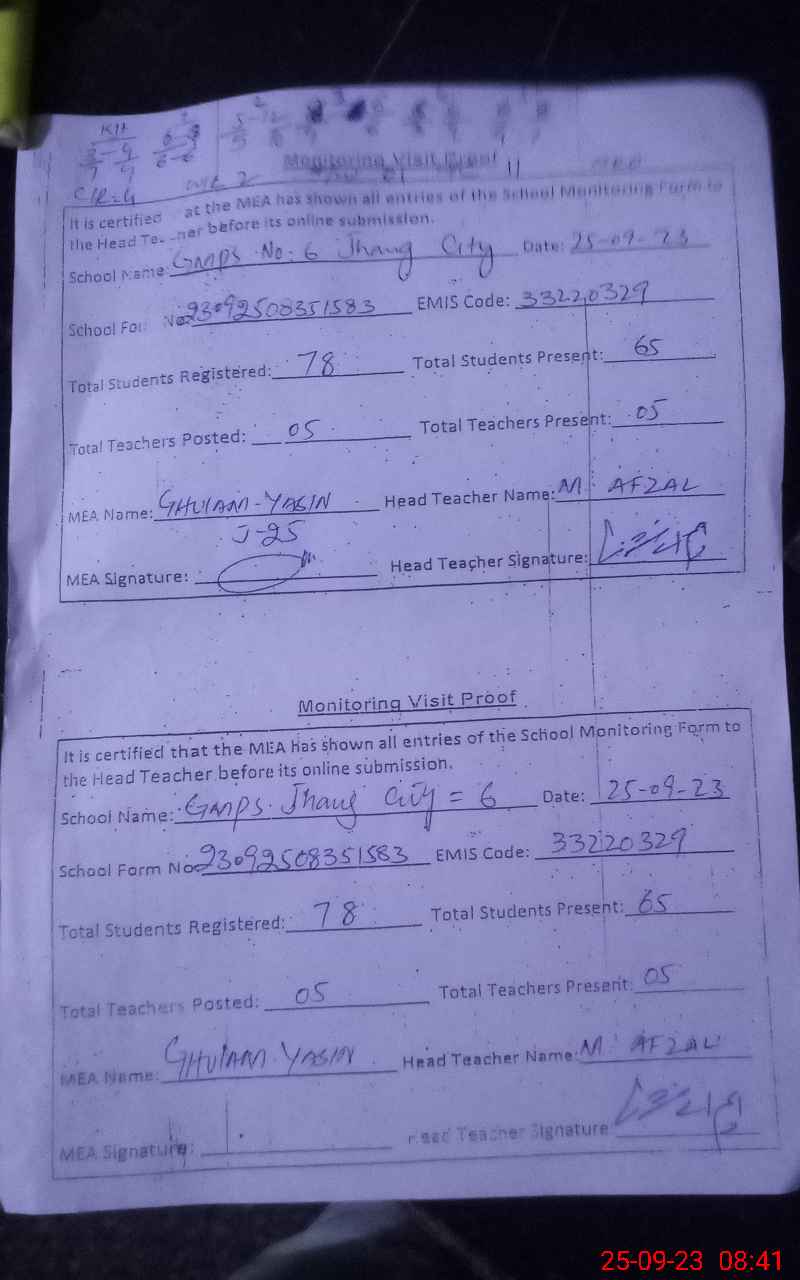 KH
C/R=4
Monitoring Visit Proof
It is certified at the MEA has shown all entries of the School Monitoring Form to
the Head Te ner before its online submission.
School Name: GMPS No: 6 Jhang City Date: 25-09-23
School For No: 23092508351583 EMIS Code: 33220329
Total Students Registered: 78 Total Students Present: 65
Total Teachers Posted: 05 Total Teachers Present: 05
MEA Name: GHULAM-YASIN Head Teacher Name: M. AFZAL
J-25
MEA Signature: Head Teacher Signature:
Monitoring Visit Proof
It is certified that the MEA has shown all entries of the School Monitoring Form to
the Head Teacher before its online submission.
School Name: GMPS. Jhang City = 6 Date: 25-09-23
School Form No: 23092508351583 EMIS Code: 33220329
Total Students Registered: 78 Total Students Present: 65
Total Teachers Posted: 05 Total Teachers Present: 05
MEA Name: GHULAM YASIN Head Teacher Name: M. AFZAL
MEA Signature: Head Teacher Signature:
25-09-23 08:41